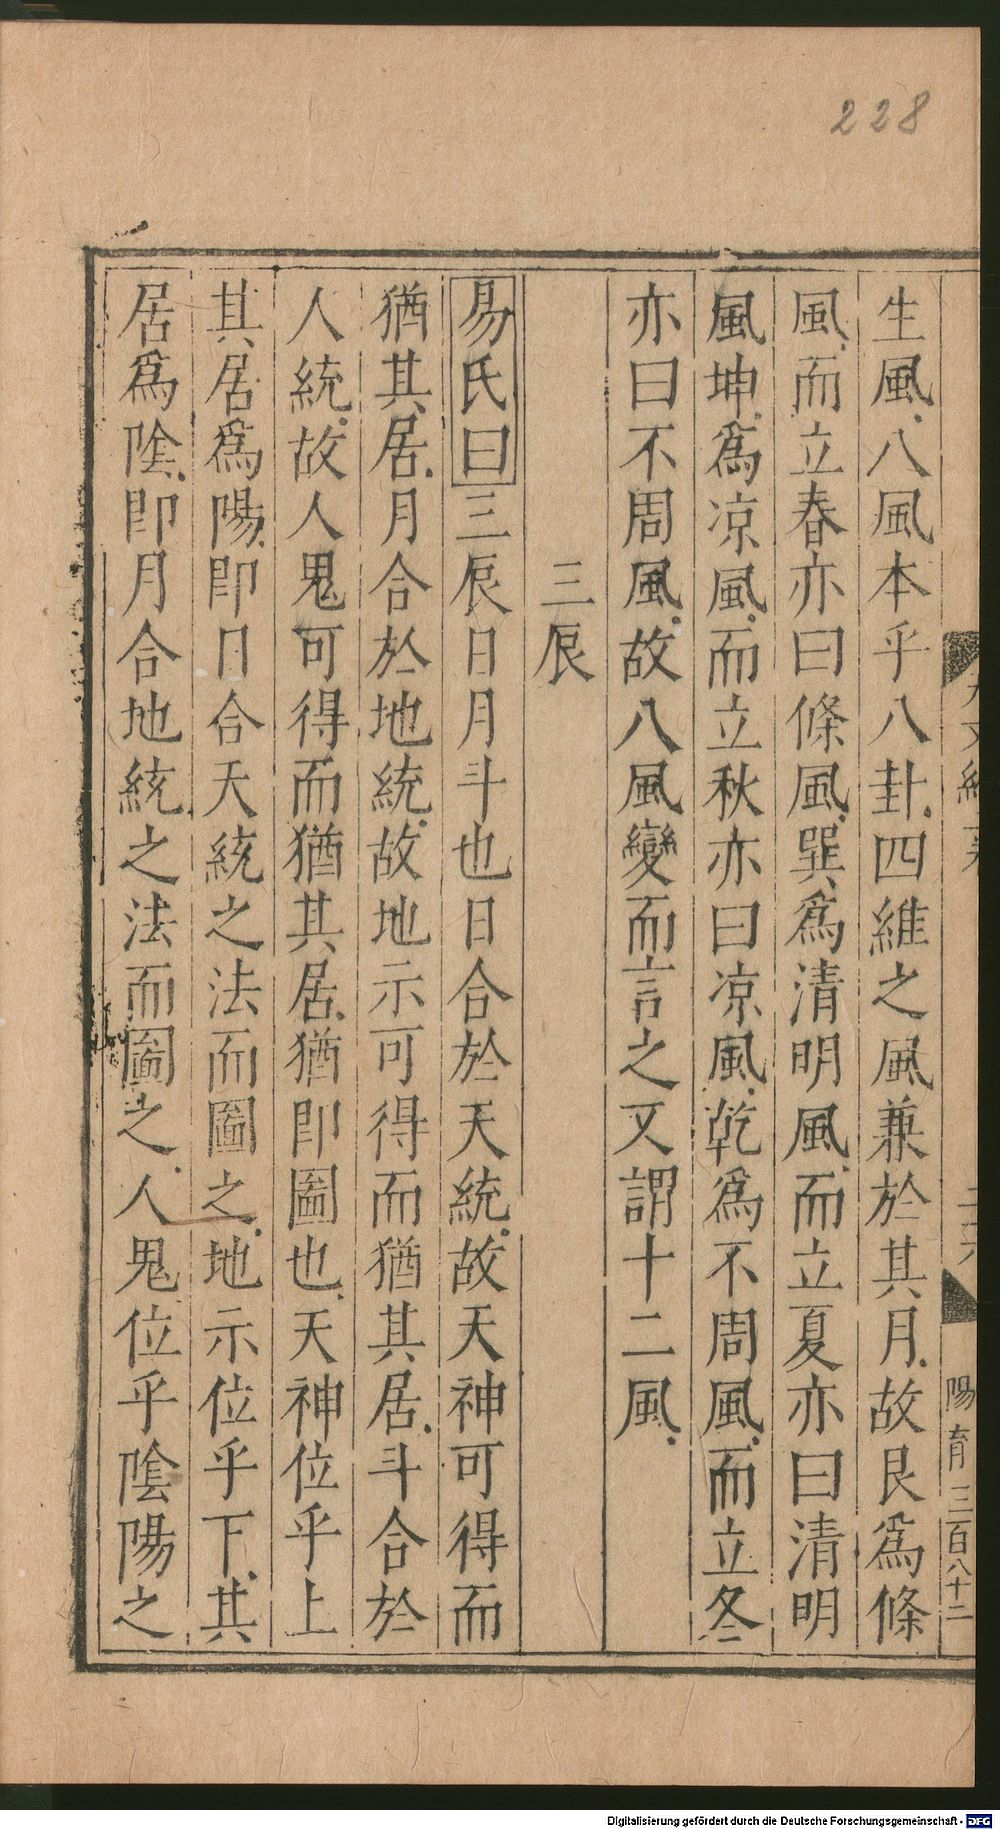 228
生風八風本乎八卦四維之風兼於其月故艮爲條
風而立春亦曰條風巽爲清明風而立夏亦曰清明
風坤爲凉風而立秋亦曰凉風乾爲不周風而立冬
亦曰不周風故八風變而言之又謂十二風
三辰
易氏曰三辰日月斗也日合於天統故天神可得而
猶其居月合於地統故地示可得而猶其居斗合於
人統故人鬼可得而猶其居猶即圖也天神位乎上
其居爲陽即日合天統之法而圖之地示位乎下其
居爲陰即月合地統之法而圖之人鬼位乎陰陽之
陽育 三百八十二
Digitalisierung gefördert durch die Deutsche Forschungsgemeinschaft - DFG